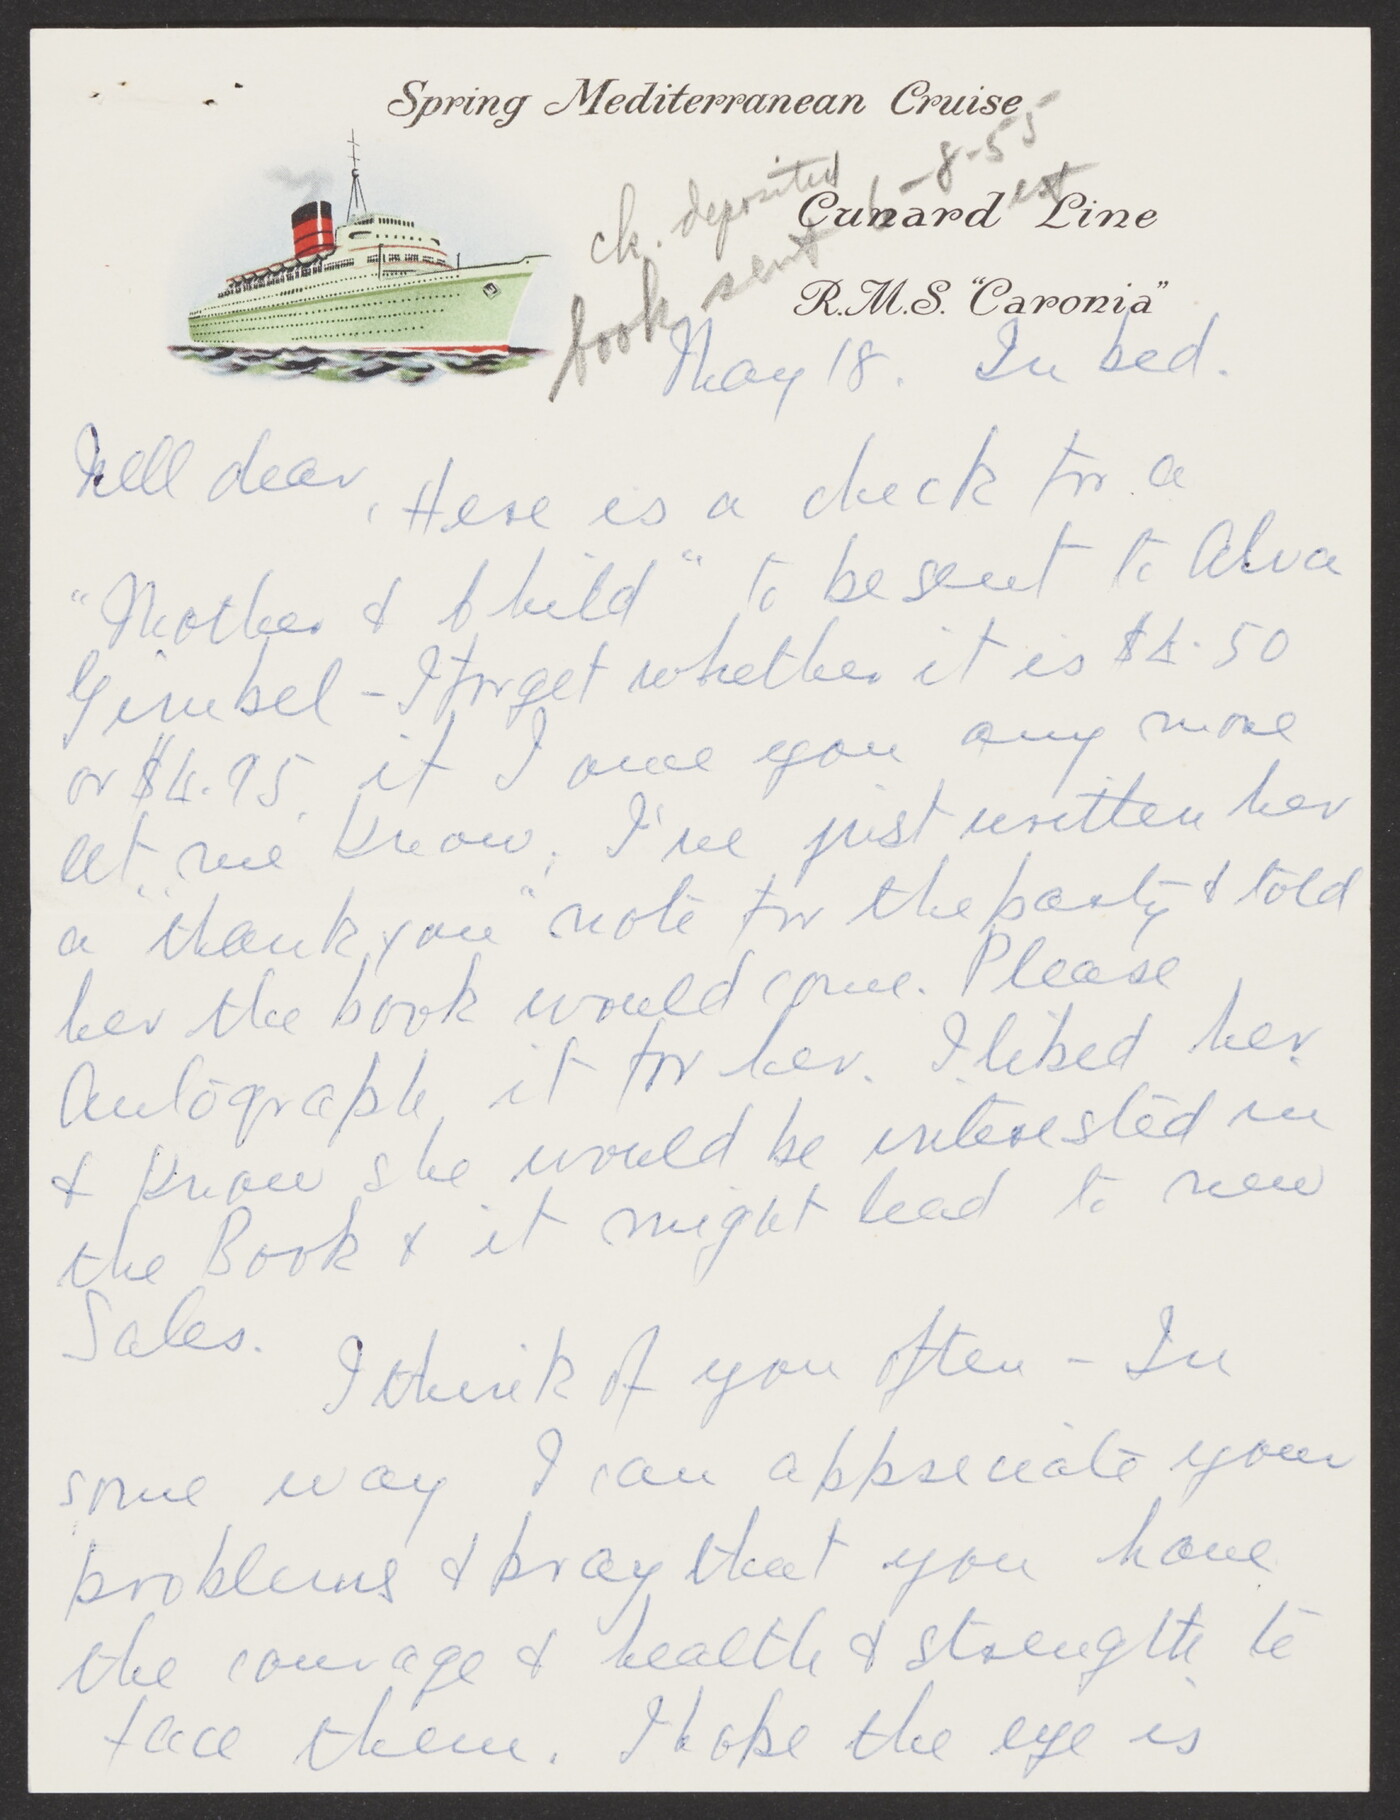 Spring Mediterranean Cruise
Cunard Line
R.M.S. "Caronia"
ck. deposited
book sent 6-8-55
May 18. In bed.
Nell dear, Here is a check for a
"Mother & Child" to be sent to Alva
Gimbel - I forget whether it is $4.50
or $4.95, if I owe you any more
let me know. I've just written her
a "thank you" note for the party & told
her the book would come. Please
Autograph it for her. I liked her
& know she would be interested in
the Book & it might lead to new
Sales.
I think of you often - In
some way I can appreciate your
problems & pray that you have
the courage & health & strength to
face them. I hope the eye is